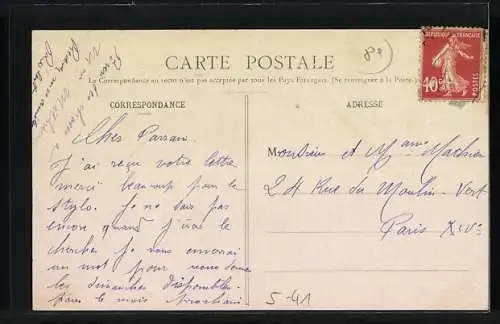 CARTE POSTALE
La Correspondance au recto n'est pas acceptée par tous les Pays Étrangers. (Se renseigner à la Poste.)
CORRESPONDANCE
ADRESSE
REPUBLIQUE FRANÇAISE
10c
POSTES
Cher
J'ai reçu votre lettre
merci beaucoup pour le
stylo. Je ne sais pas
encore quand j'irai le
chercher Je vous enverrai
un mot pour vous
les dimanches disponibles
le mois prochain
Monsieur et Mame Mathieu
24 Rue du Moulin-Vert
Paris XIVe
5-41